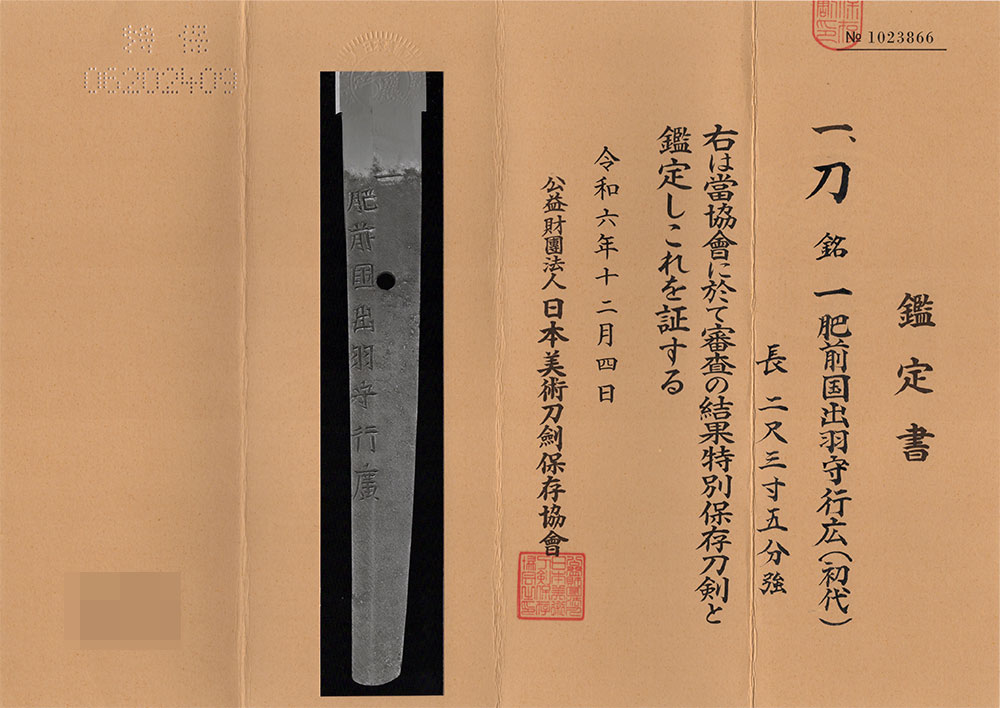 № 1023866
鑑定書
一、刀 銘 一肥前国出羽守行広(初代)
長 二尺三寸五分強
右は當協會に於て審査の結果特別保存刀剣と
鑑定しこれを証する
令和六年十二月四日
公益財團法人 日本美術刀劍保存協會
一肥前国出羽守行廣
特保
06202409